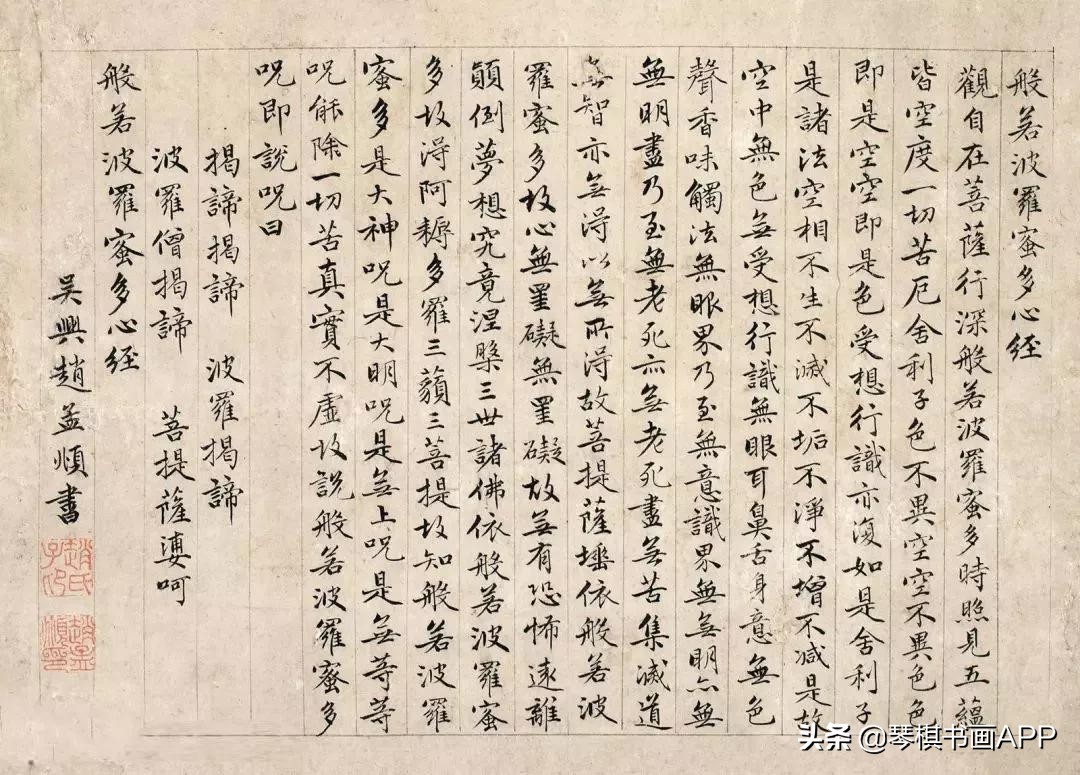 般若波羅蜜多心經
觀自在菩薩行深般若波羅蜜多時照見五蘊
皆空度一切苦厄舍利子色不異空空不異色色
即是空空即是色受想行識亦復如是舍利子
是諸法空相不生不滅不垢不淨不增不減是故
空中無色無受想行識無眼耳鼻舌身意無色
聲香味觸法無眼界乃至無意識界無無明亦無
無明盡乃至無老死亦無老死盡無苦集滅道
無智亦無得以無所得故菩提薩埵依般若波
羅蜜多故心無罣礙無罣礙故無有恐怖遠離
顛倒夢想究竟涅槃三世諸佛依般若波羅蜜
多故得阿耨多羅三藐三菩提故知般若波羅
蜜多是大神呪是大明呪是無上呪是無等等
呪能除一切苦真實不虛故說般若波羅蜜多
呪即說呪曰
揭諦揭諦 波羅揭諦
波羅僧揭諦 菩提薩婆呵
般若波羅蜜多心經
吳興趙孟頫書
趙氏子昂
趙孟頫印
头条 @琴棋书画APP